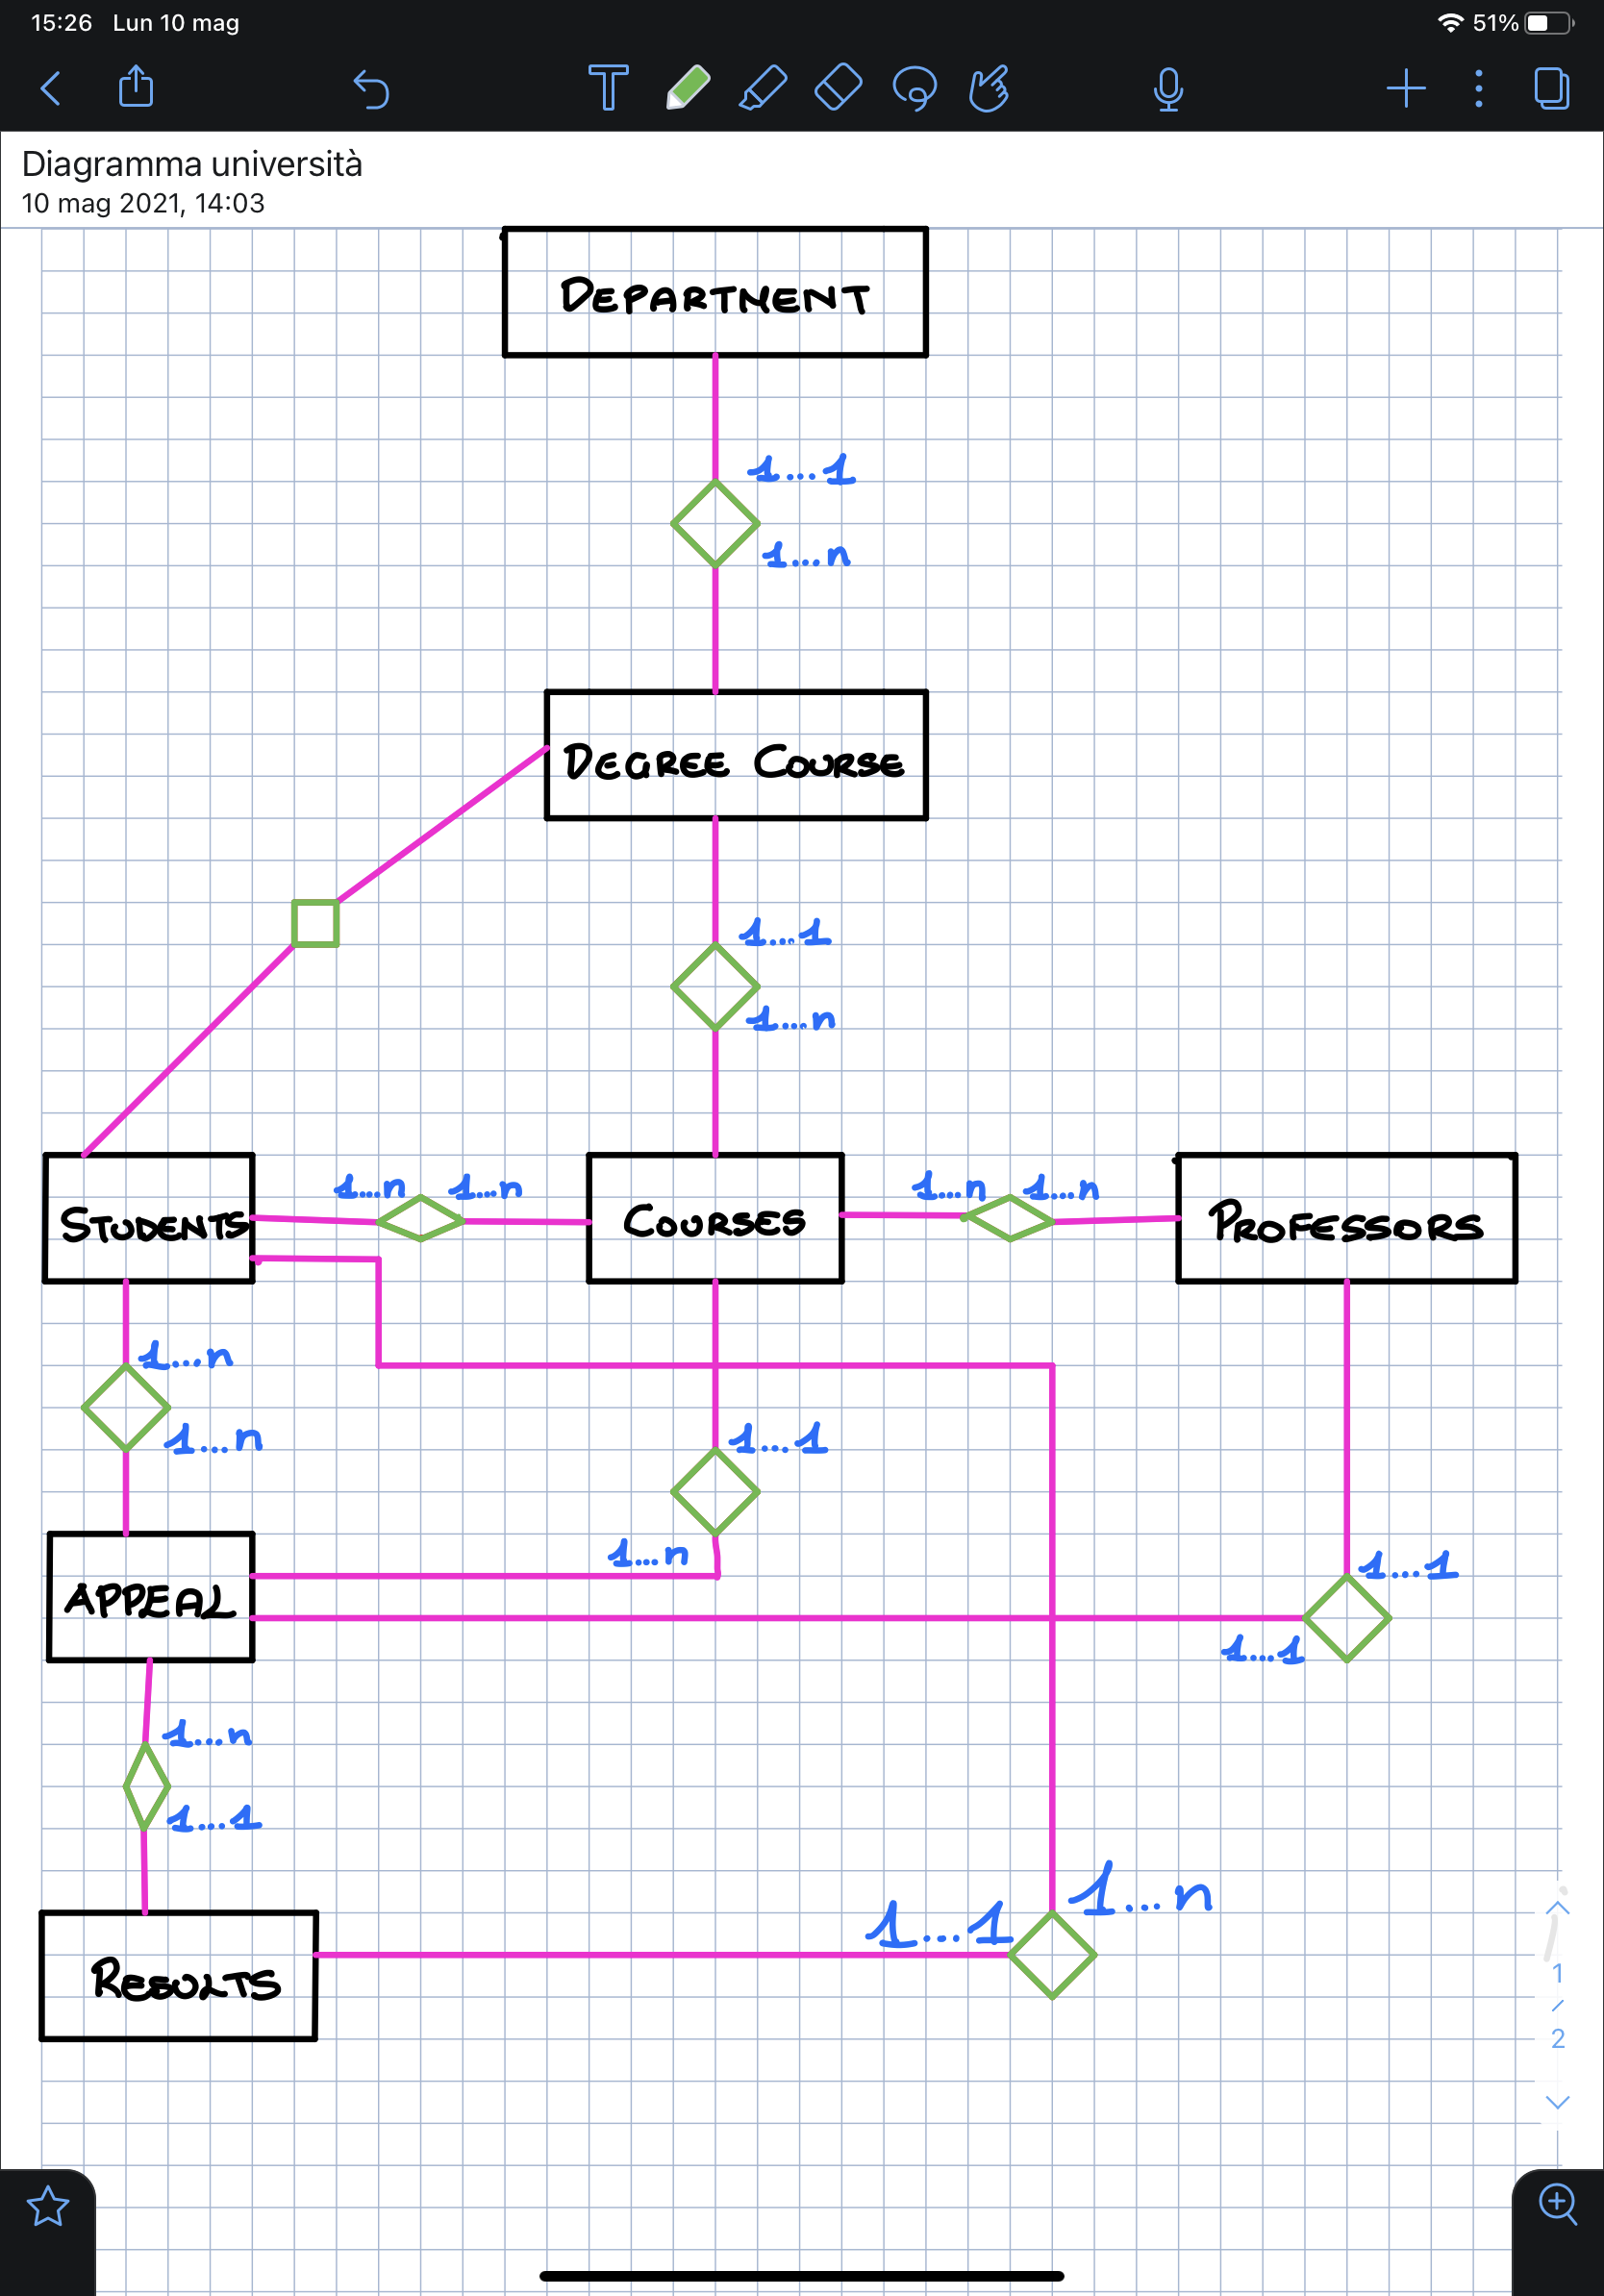 15:26 Lun 10 mag 51%
Diagramma università
10 mag 2021, 14:03
DEPARTMENT
1...1
1...n
DEGREE COURSE
1...1
1...n
STUDENTS
1...n 1...n
COURSES
1...n 1...n
PROFESSORS
1...n
1...n
1...1
1...n
APPEAL
1...1
1...1
1...n
1...1
1...n
1...1
RESULTS
1
/
2